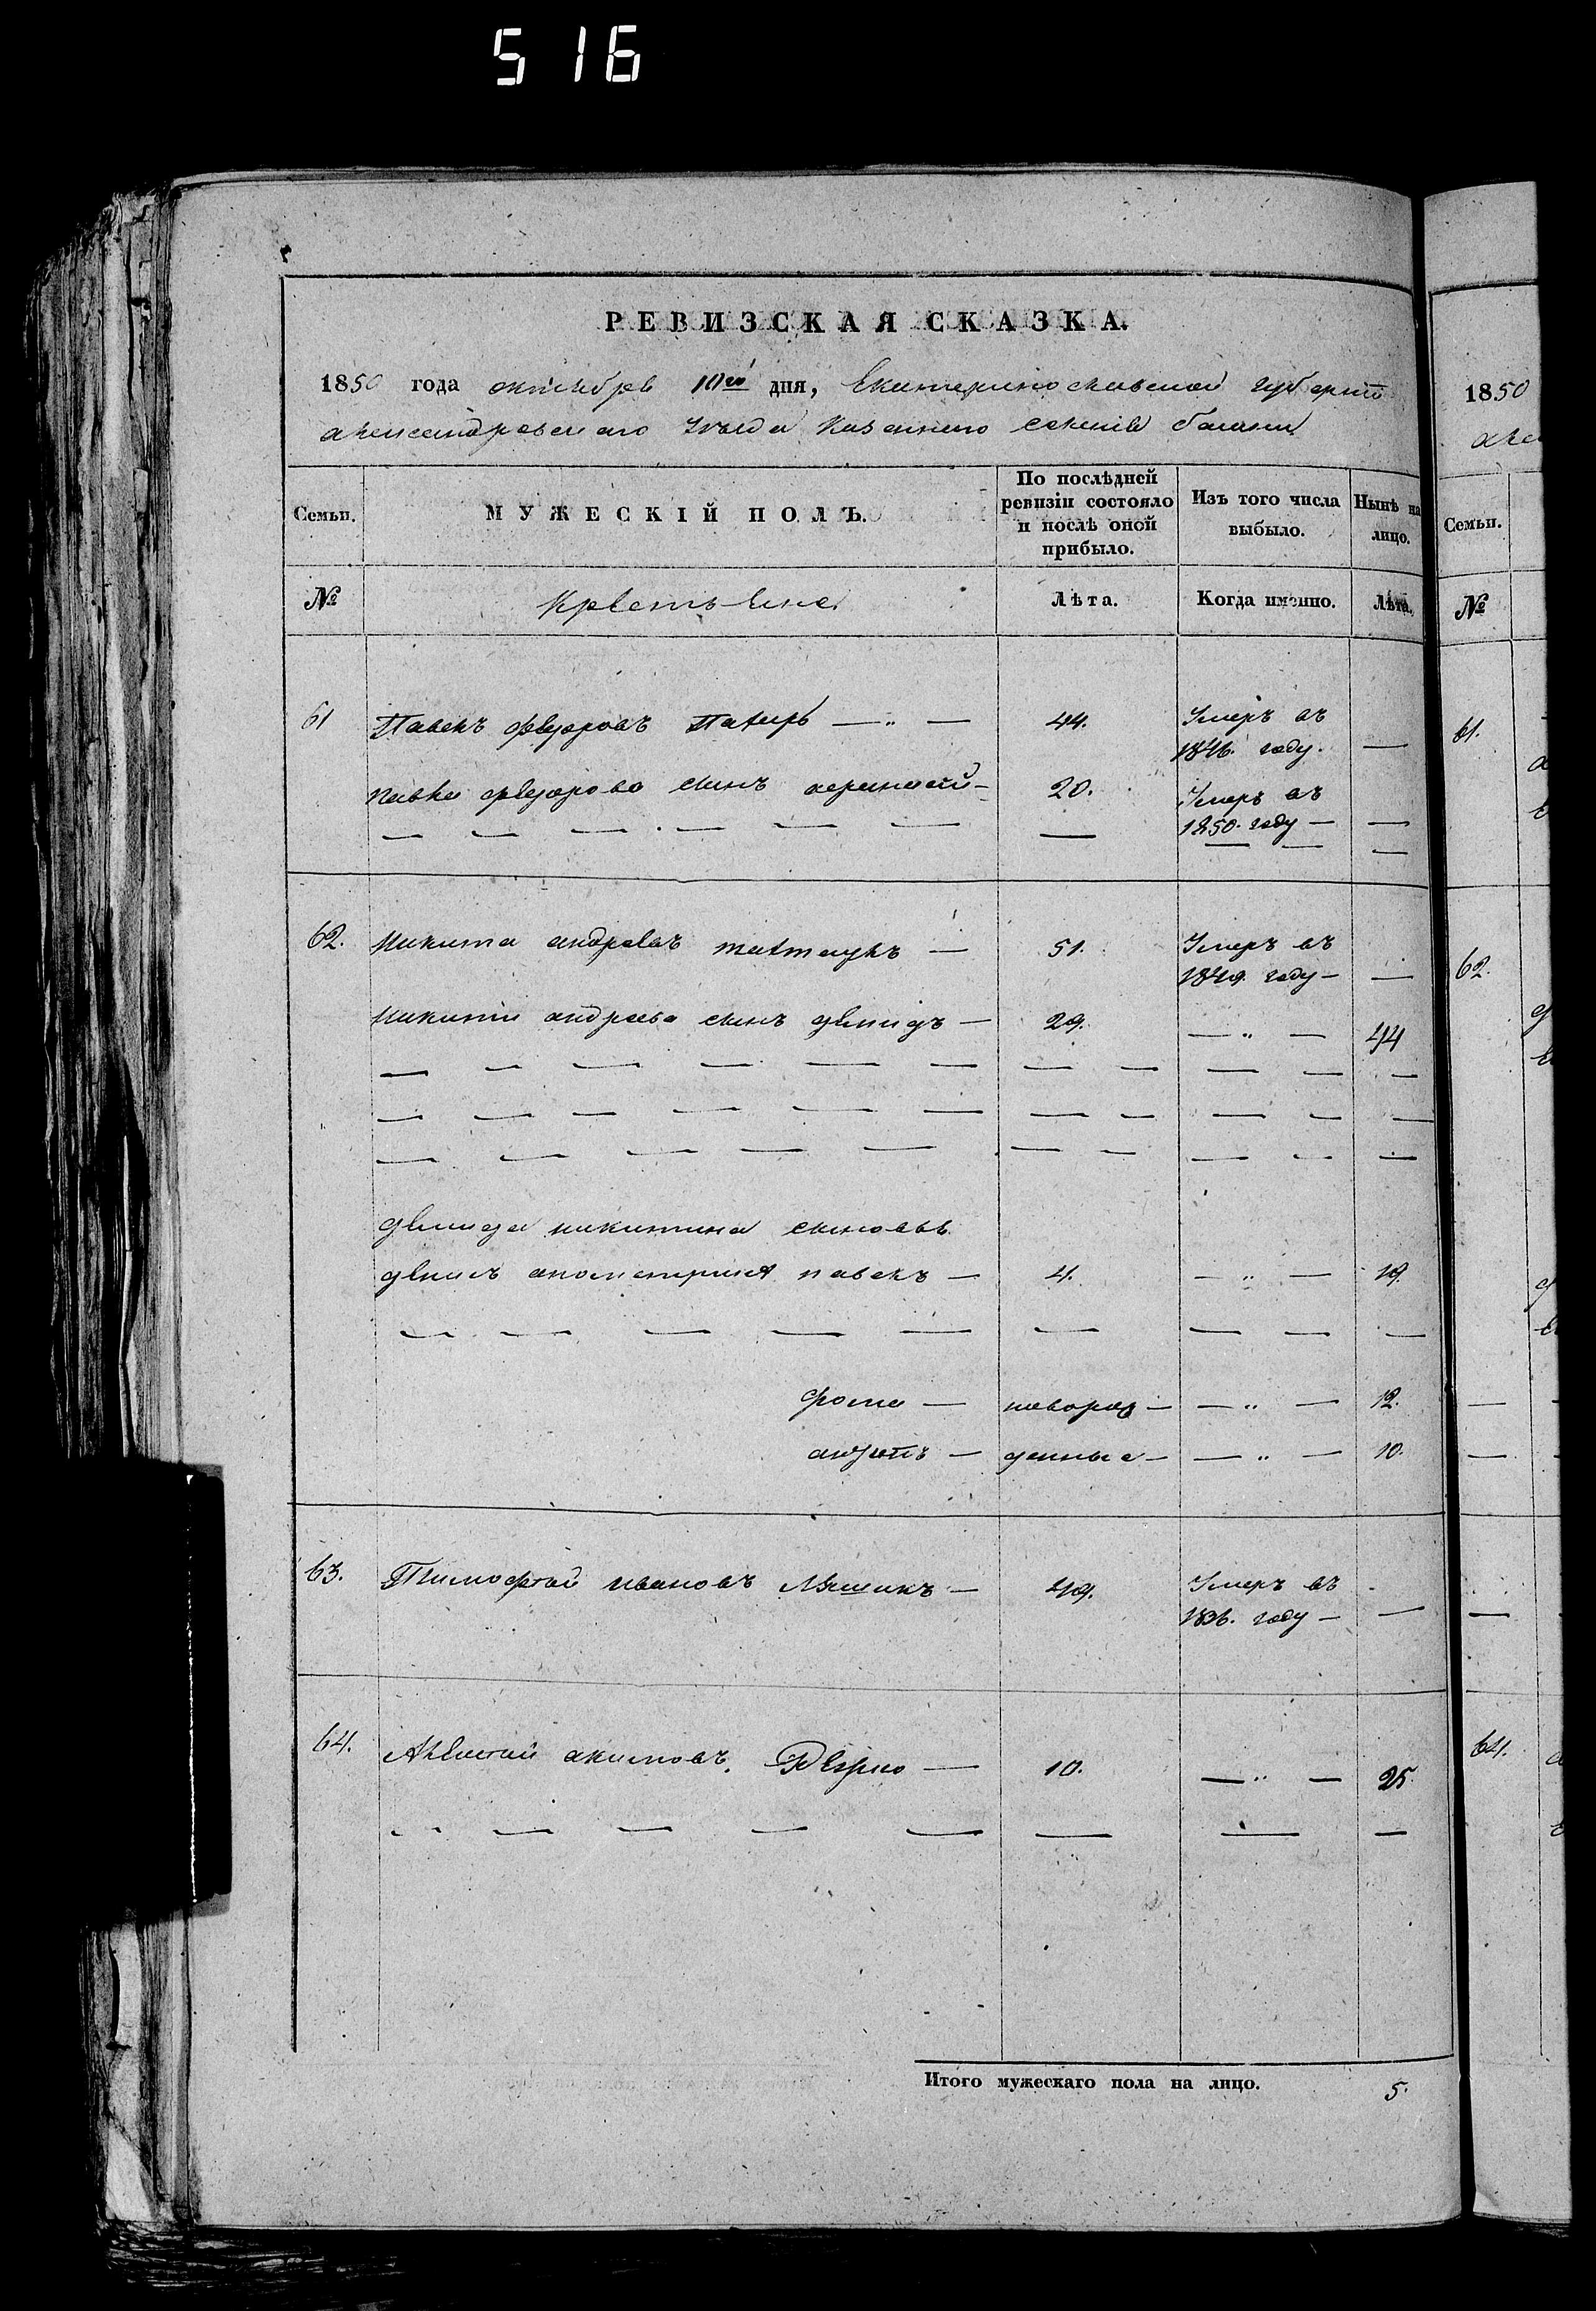 516
РЕВИЗСКАЯ СКАЗКА.
1850 года октября 10го дня, Екатеринославской губернии
александровского уезда казенного селения
Семьи.
МУЖЕСКІЙ ПОЛЪ.
По послѣдней ревизіи состояло и послѣ оной прибыло.
Изъ того числа выбыло.
Нынѣ на лицо.
№
Крестьяне
Лѣта.
Когда именно.
Лѣта.
61 Павелъ федоровъ — „ — 44. Умеръ въ
1846. году. —
павла федорова сынъ 20. Умеръ въ
1850. году — —
62. Никита андреевъ — 51. Умеръ въ
1849. году — —
никиты андреева сынъ демидъ — 29. — „ — 44
демида никитина сыновья
денисъ павелъ — 4. — „ — 19.
фома — новорож — — „ — 12.
— денные — — „ — 10.
63. Тимофей ивановъ Ляшикъ — 49. Умеръ въ
1836. году — —
64. Алексей акимовъ. — 10. — „ — 25.
Итого мужескаго пола на лицо. 5.
1850
Семьи.
№
61.
62.
64.